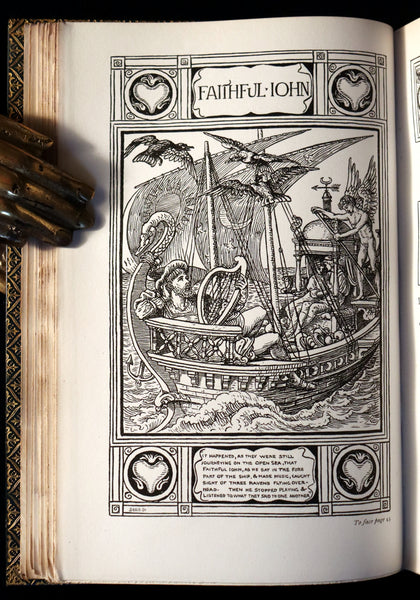 FAITHFUL · IOHN
IT HAPPENED, AS THEY WERE STILL
JOURNEYING ON THE OPEN SEA, THAT
FAITHFUL IOHN, AS HE SAT IN THE FORE
PART OF THE SHIP, & MADE MUSIC, CAUGHT
SIGHT OF THREE RAVENS FLYING OVER-
HEAD. THEN HE STOPPED PLAYING &
LISTENED TO WHAT THEY SAID TO ONE ANOTHER
To face page